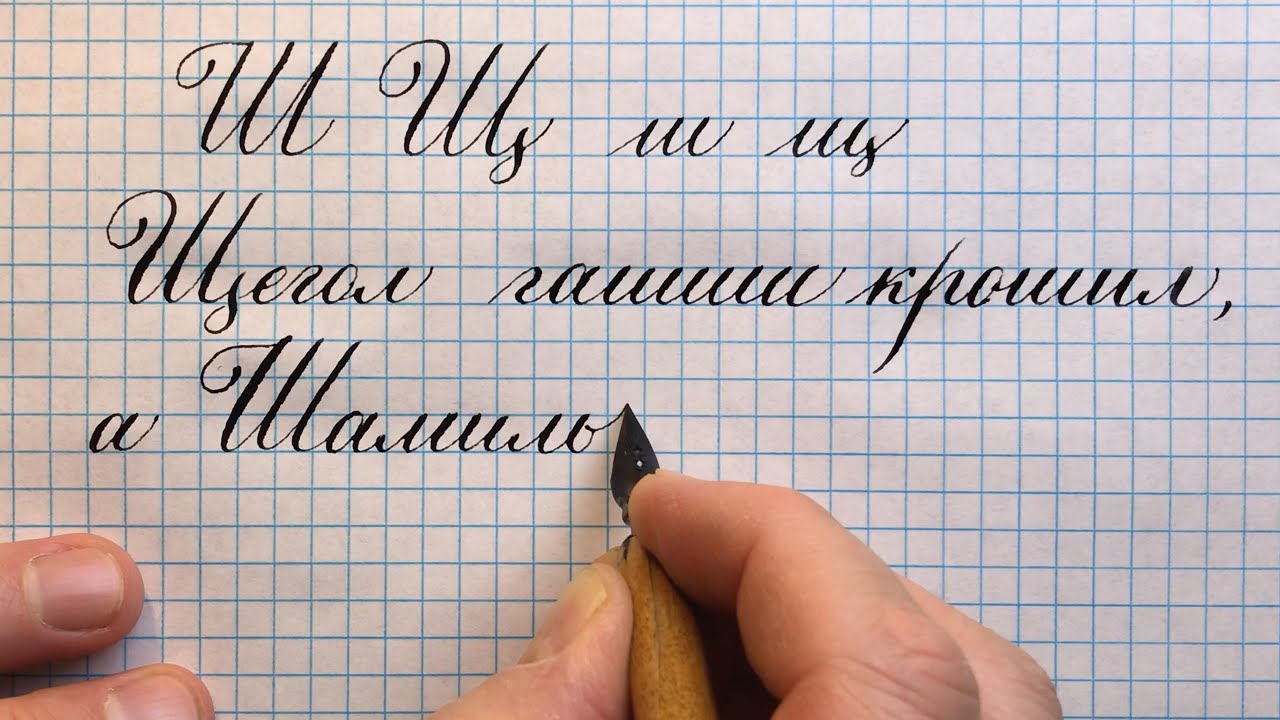 Ш Щ ш щ
Щегол гашиш крошил,
а Шамиль